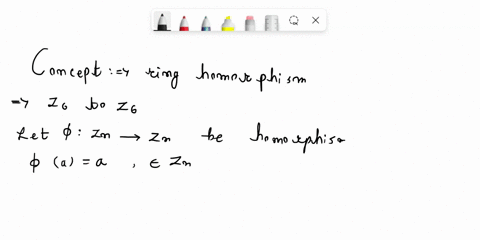 Concept :=> ring homorphism
=> Z6 to Z6
Let ϕ: Zn → Zn be homorphiso
ϕ (a) = a , ∈ Zn